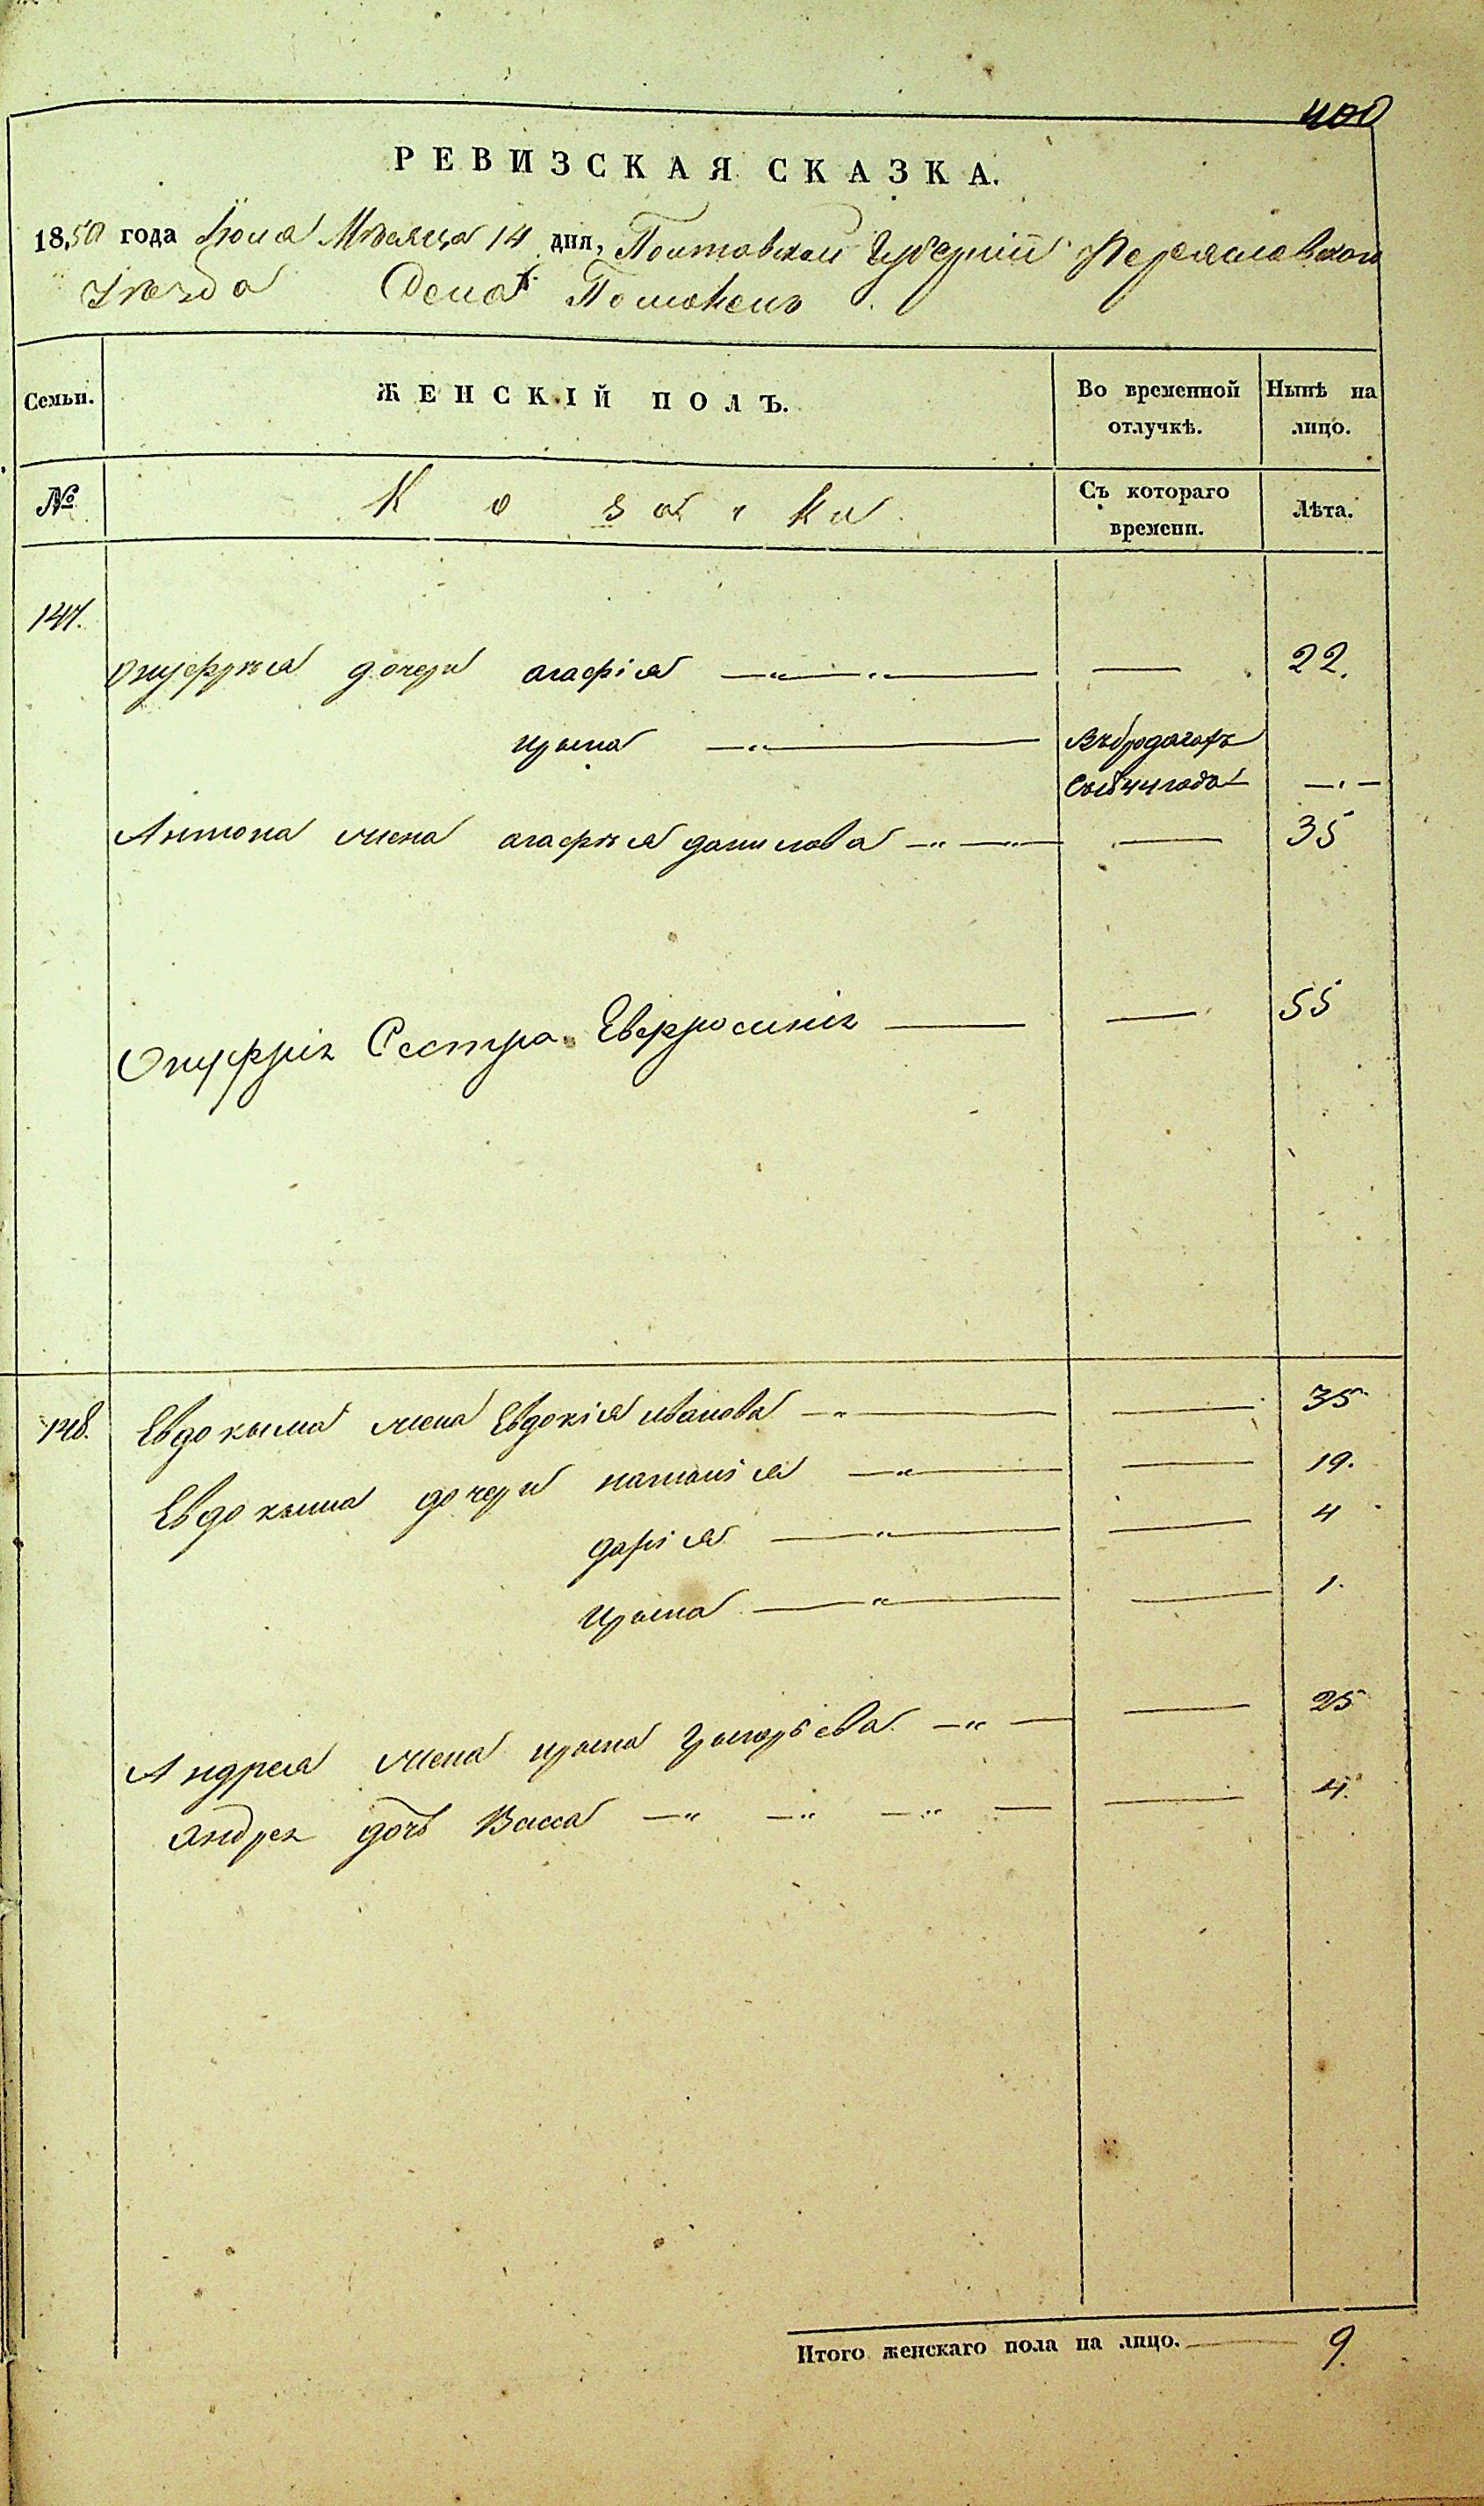 400
РЕВИЗСКАЯ СКАЗКА.
1850 года Іюля Мѣсяца 14 дня, Полтавской Губерніи Переяславского
Уѣзда Села Помоклъ
Семьи. ЖЕНСКІЙ ПОЛЪ. Во временной отлучкѣ. Нынѣ на лицо.
№ Козачки Съ котораго времени. Лѣта.
147.
Онуфрѣя дочери агафія — 22.
ирина Въ бродягахъ
Съ 1844 года
Антона жена агафѣя данилова — 35
Онуфрія Сестра Евфросинія — 55
148. Евдокима жена Евдокія иванова — 35
Евдокима дочери наталія — 19.
дарія — 4
ирина — 1.
Андрея жена ирина григорьева — 25
Андрея дочь Васса — 4.
Итого женскаго пола на лицо. — 9.